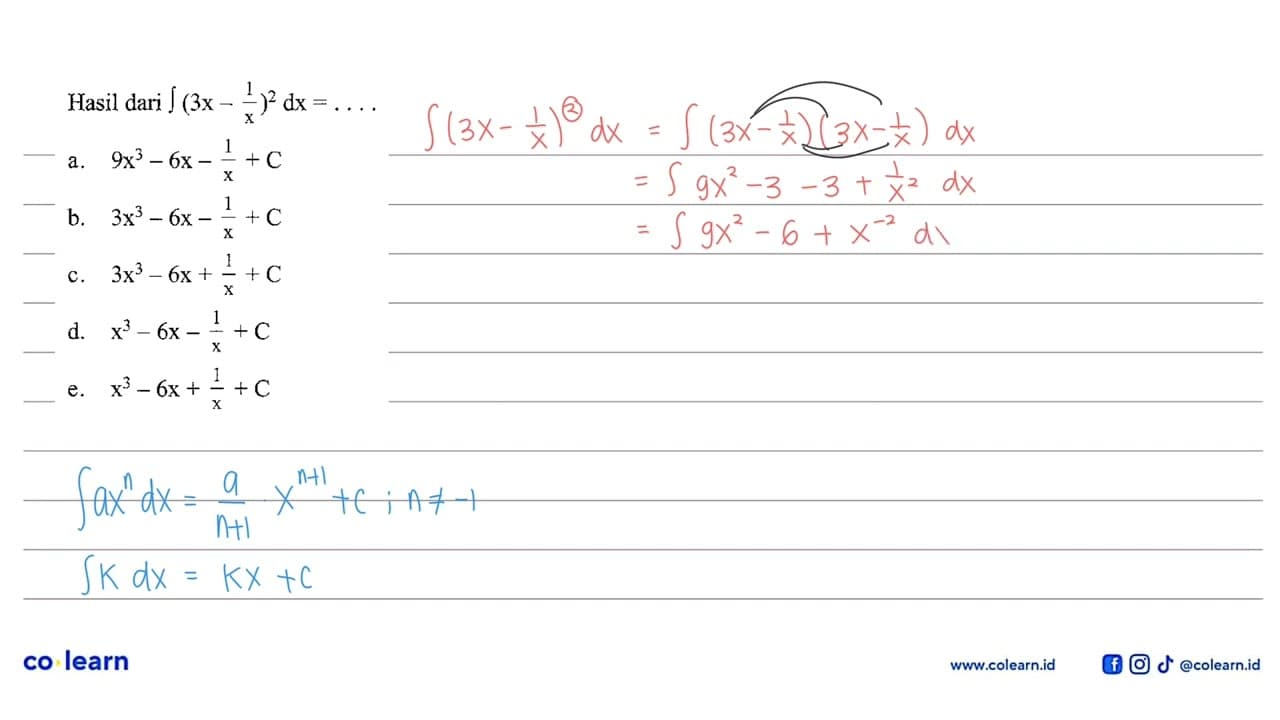 Hasil dari ∫ (3x – 1/x)² dx = . . . .
a. 9x³ – 6x – 1/x + C
b. 3x³ – 6x – 1/x + C
c. 3x³ – 6x + 1/x + C
d. x³ – 6x – 1/x + C
e. x³ – 6x + 1/x + C
∫(3x - 1/x)² dx = ∫ (3x - 1/x)(3x - 1/x) dx
= ∫ 9x² - 3 - 3 + 1/x² dx
= ∫ 9x² - 6 + x⁻² d\
∫axⁿ dx = a/(n+1) · xⁿ⁺¹ + c ; n ≠ -1
∫K dx = Kx + c
co learn
www.colearn.id
@colearn.id